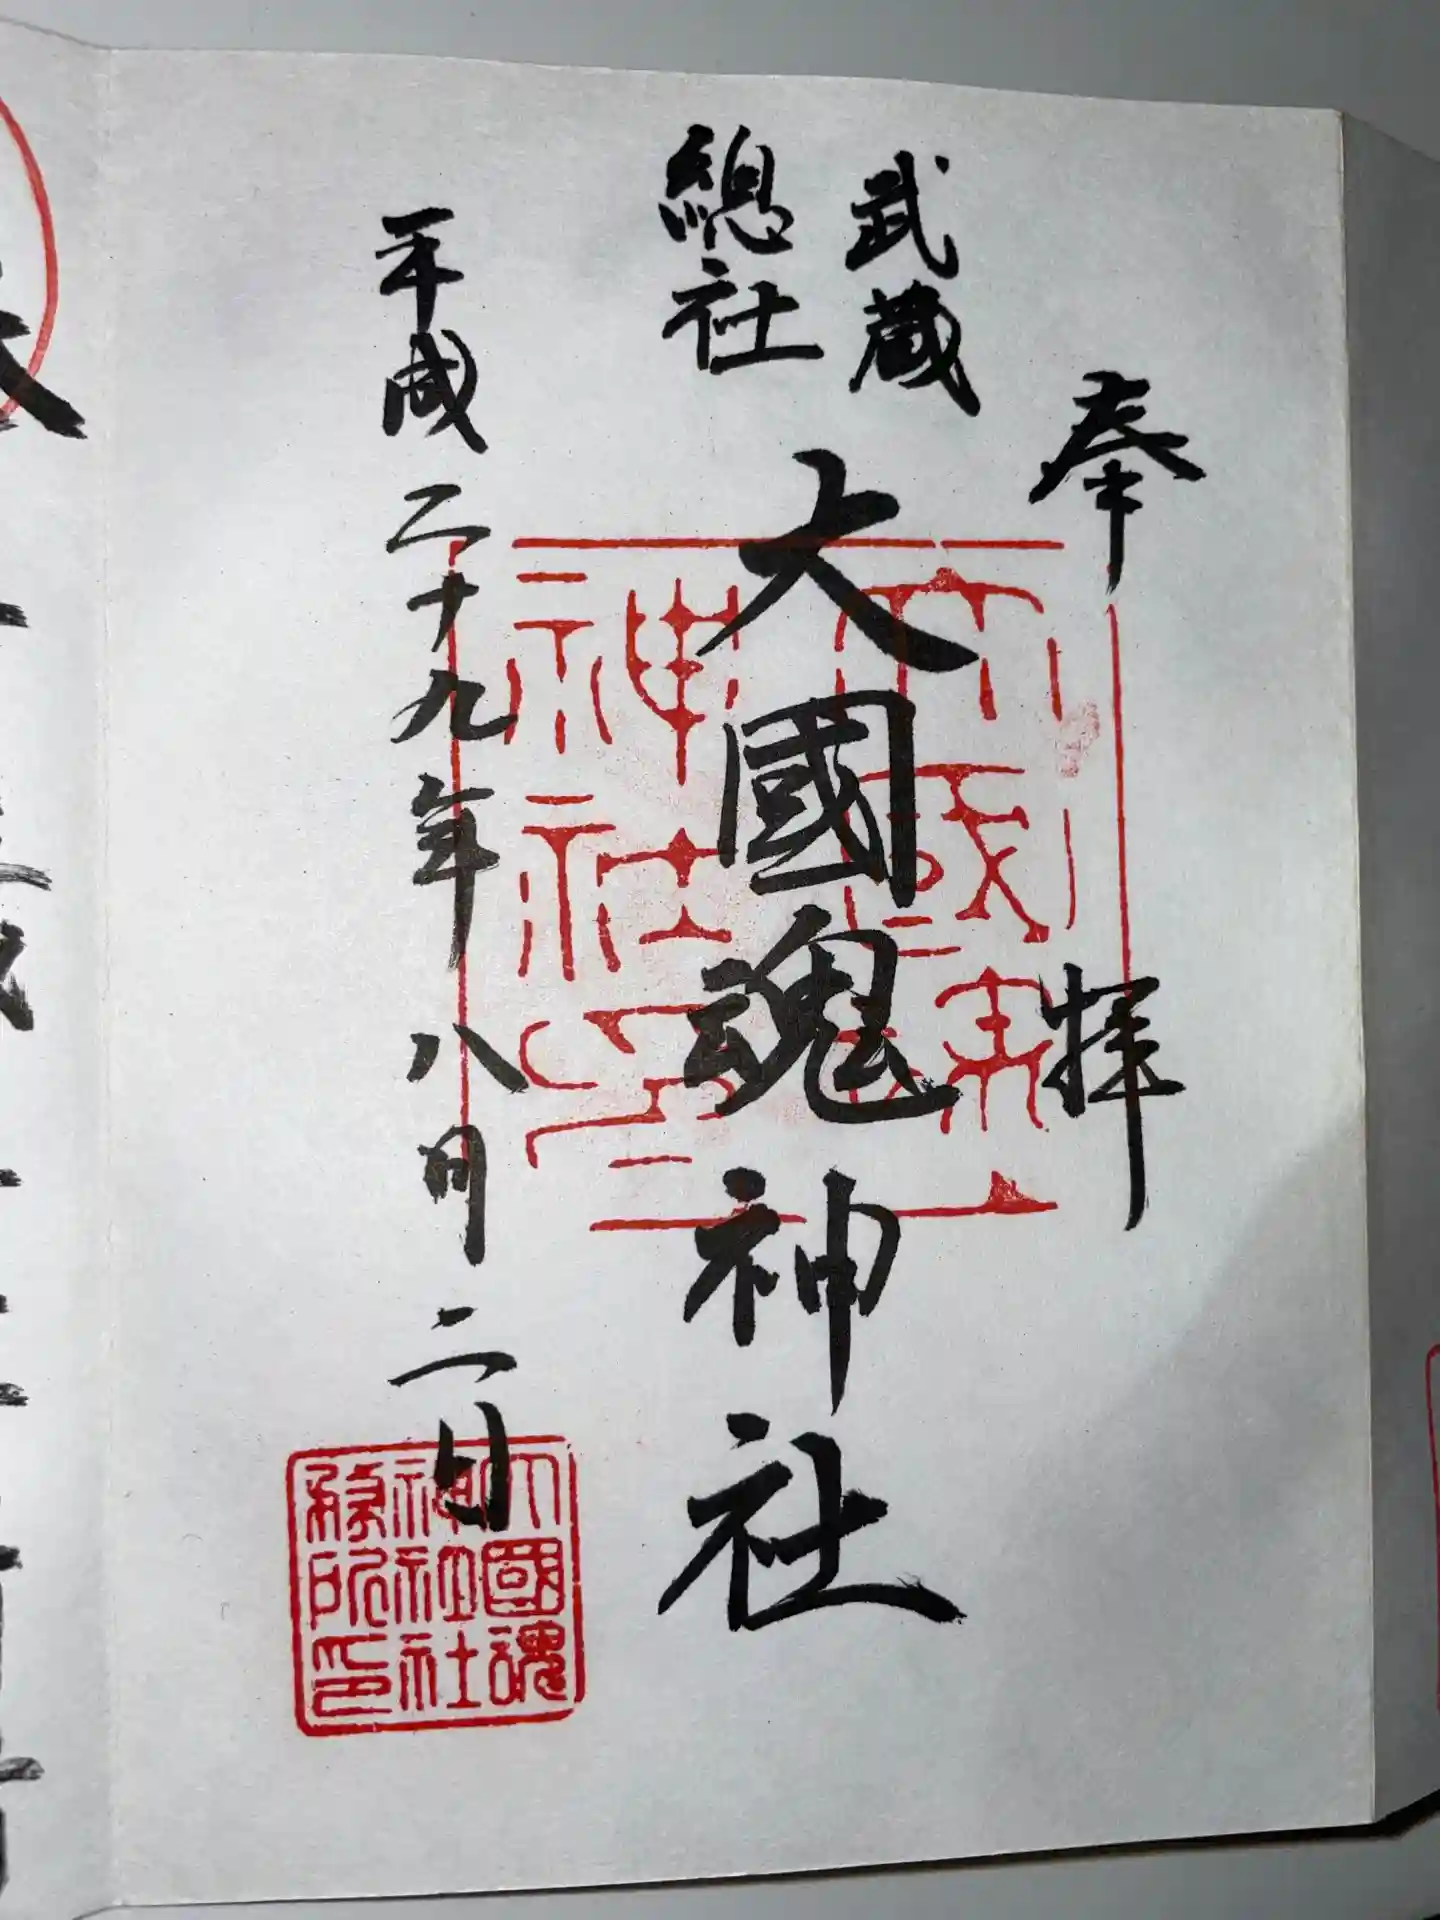 奉拝
武蔵
總社
大國魂神社
平成二十九年八月二日
大國魂
神社
印
大國魂
神社社
務所印